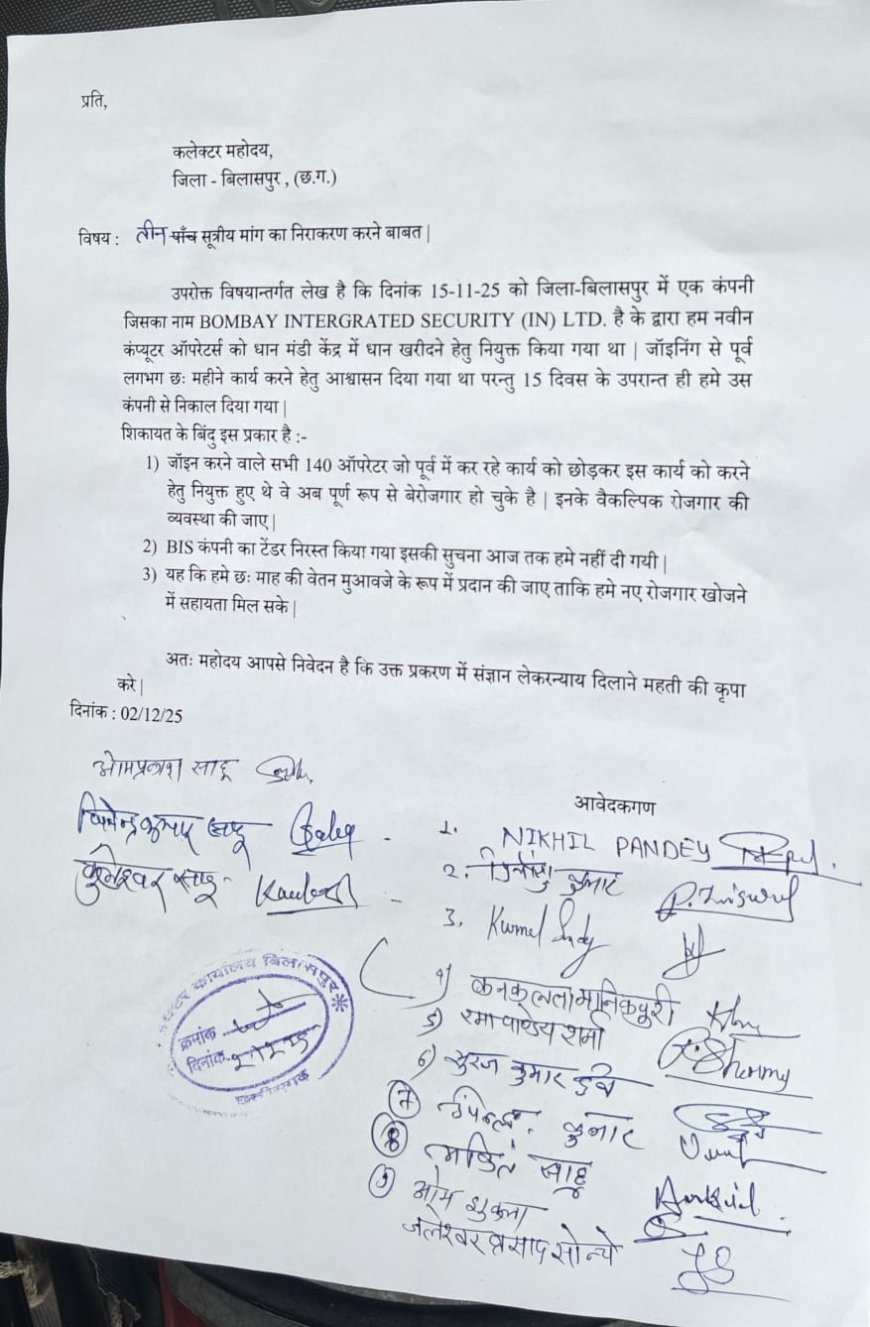 प्रति,
कलेक्टर महोदय,
जिला - बिलासपुर , (छ.ग.)
विषय : तीन पाँच सूत्रीय मांग का निराकरण करने बाबत |
उपरोक्त विषयान्तर्गत लेख है कि दिनांक 15-11-25 को जिला-बिलासपुर में एक कंपनी
जिसका नाम BOMBAY INTERGRATED SECURITY (IN) LTD. है के द्वारा हम नवीन
कंप्यूटर ऑपरेटर्स को धान मंडी केंद्र में धान खरीदने हेतु नियुक्त किया गया था | जॉइनिंग से पूर्व
लगभग छः महीने कार्य करने हेतु आश्वासन दिया गया था परन्तु 15 दिवस के उपरान्त ही हमे उस
कंपनी से निकाल दिया गया |
शिकायत के बिंदु इस प्रकार है :-
1) जॉइन करने वाले सभी 140 ऑपरेटर जो पूर्व में कर रहे कार्य को छोड़कर इस कार्य को करने
हेतु नियुक्त हुए थे वे अब पूर्ण रूप से बेरोजगार हो चुके है | इनके वैकल्पिक रोजगार की
व्यवस्था की जाए |
2) BIS कंपनी का टेंडर निरस्त किया गया इसकी सुचना आज तक हमे नहीं दी गयी |
3) यह कि हमे छः माह की वेतन मुआवजे के रूप में प्रदान की जाए ताकि हमे नए रोजगार खोजने
में सहायता मिल सके |
अतः महोदय आपसे निवेदन है कि उक्त प्रकरण में संज्ञान लेकरन्याय दिलाने महती की कृपा
करे |
दिनांक : 02/12/25
ओमप्रकाश साहू
आवेदकगण
1. NIKHIL PANDEY
2. कुमार
3.
4) कनकलता मानिकपुरी
5) रमा पाण्डेय शर्मा R. Sharma
6) सुरज कुमार
7) कुमार
8) अंकित साहू Ankit
9) ओम शुक्ला
जलेश्वर प्रसाद
कार्यालय बिलासपुर
क्रमांक
दिनांक